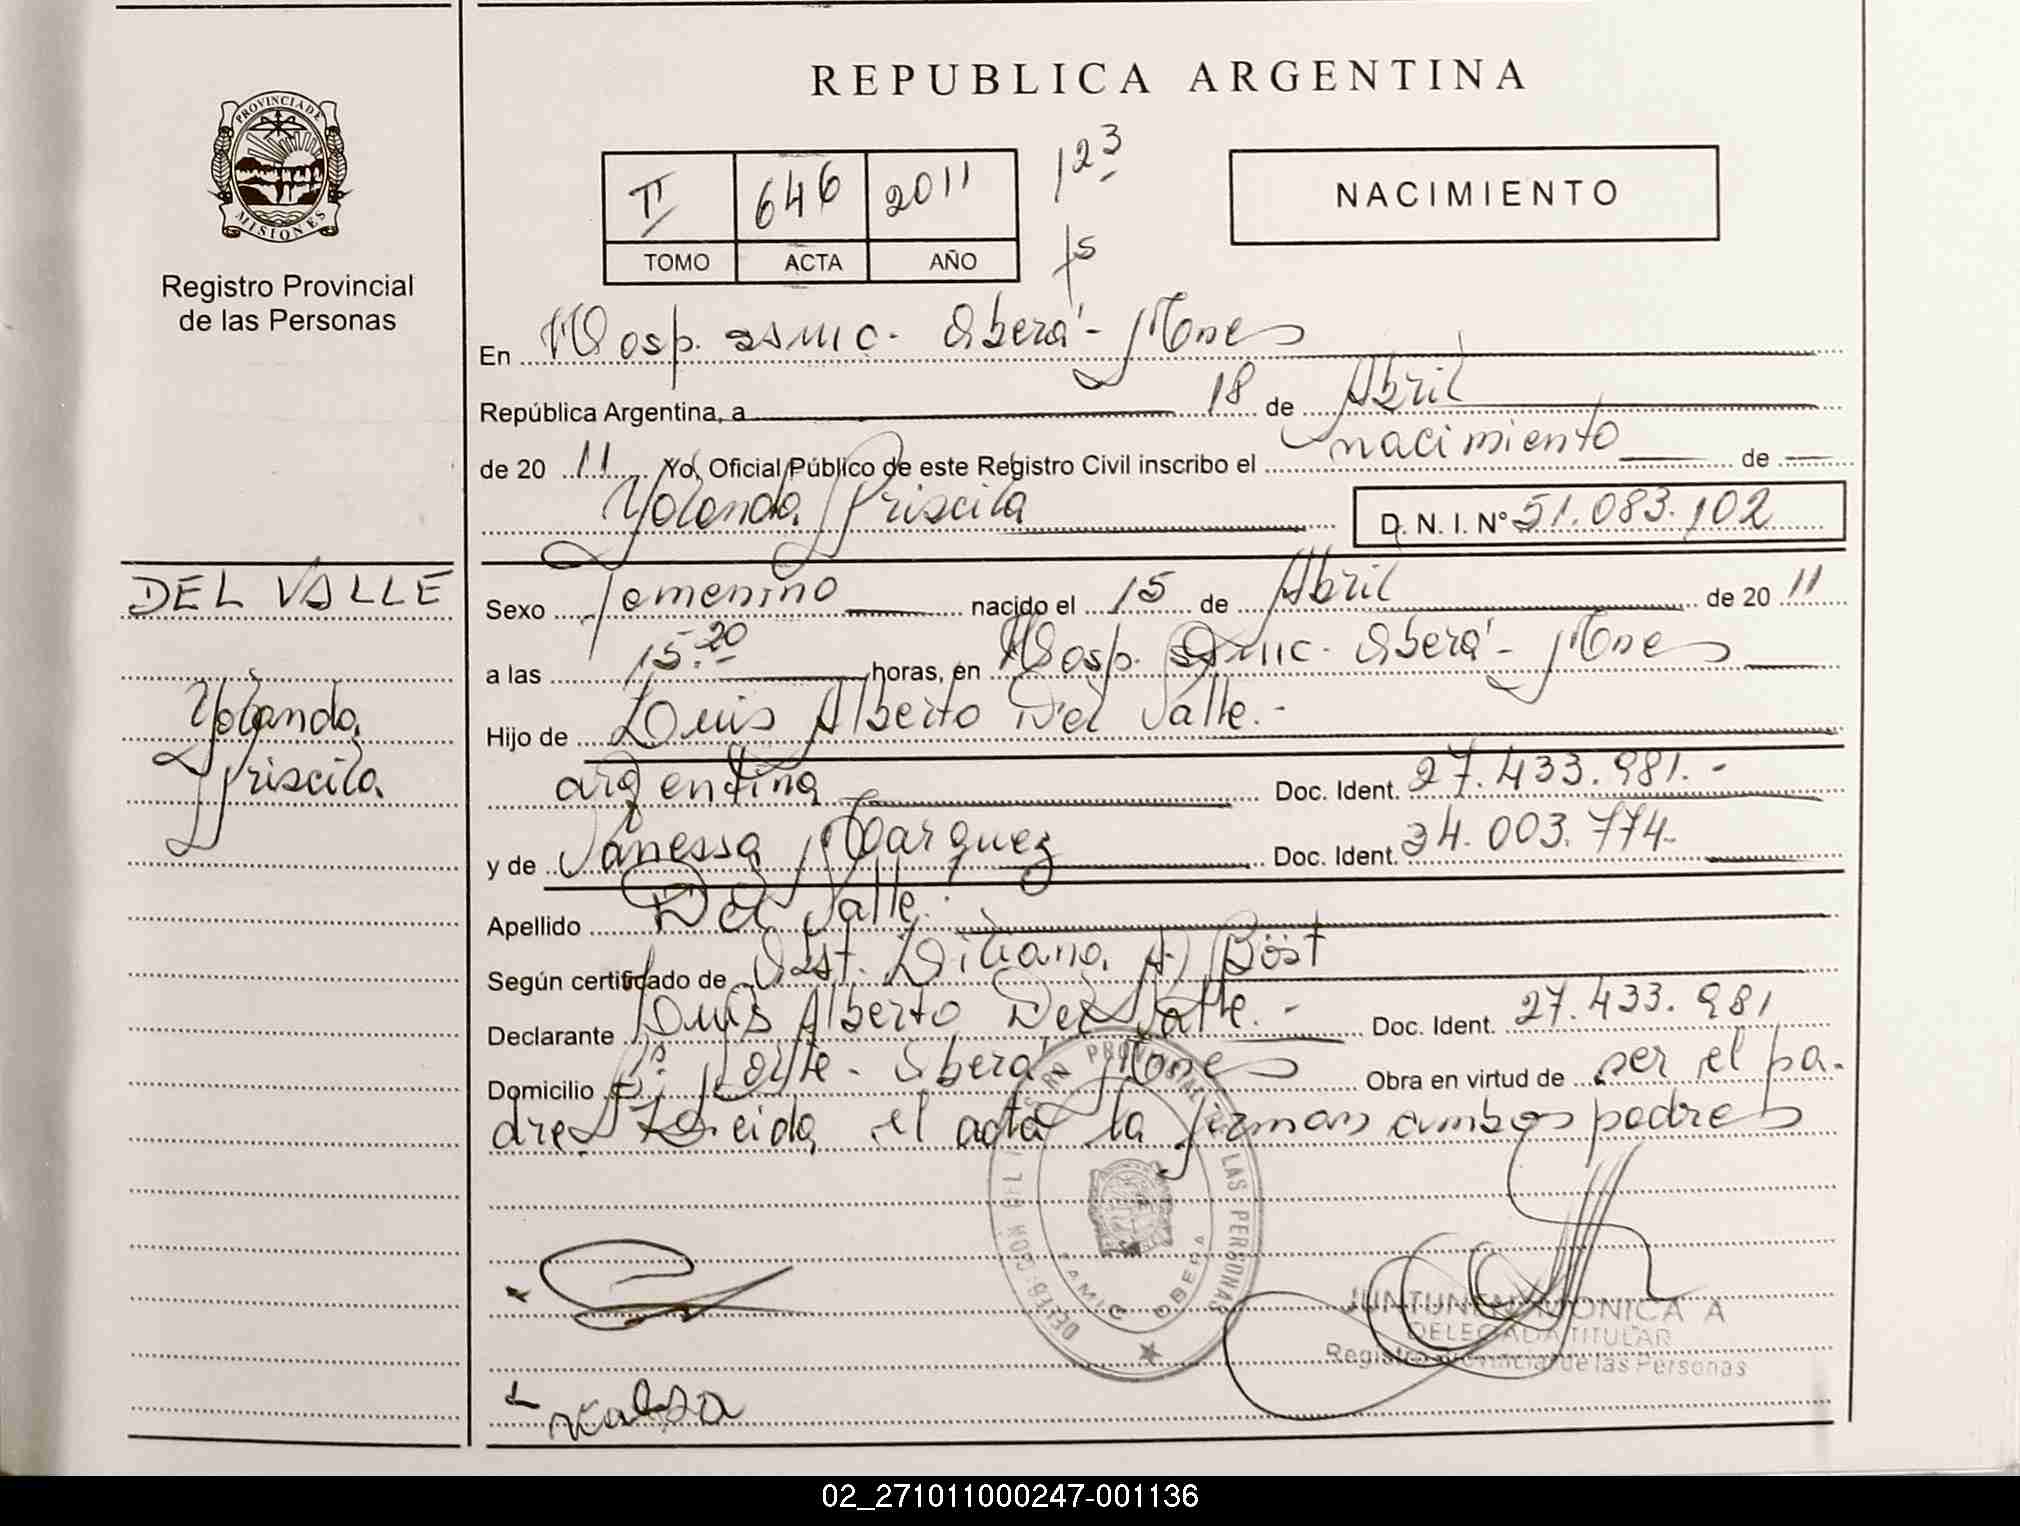 REPUBLICA ARGENTINA
PROVINCIA DE
MISIONES
Registro Provincial
de las Personas
II 646 2011
TOMO ACTA AÑO
123
15
NACIMIENTO
En Hosp. samic. Oberá - Mones
República Argentina, a 18 de Abril
de 20 11 Yo, Oficial Público de este Registro Civil inscribo el nacimiento de
Yolanda Priscila D. N. I. N° 51.083.102
DEL VALLE
Yolanda
Priscila
Sexo Femenino nacido el 15 de Abril de 20 11
a las 15.20 horas, en Hosp. Samic. Oberá - Mones
Hijo de Luis Alberto Del Valle.-
argentina Doc. Ident. 27.433.981.-
y de Vanessa Marquez Doc. Ident. 34.003.774-
Apellido Del Valle.
Según certificado de Obst. Liliana A. Böst
Declarante Luis Alberto Del Valle.- Doc. Ident. 27.433.981
Domicilio Bº Norte - Oberá Mones Obra en virtud de ser el pa-
dre Leida el acta la firman ambos padres
PROVINCIAL DE LAS PERSONAS
SAMIC OBERA
JUNTUNEN MONICA A
DELEGADA TITULAR
Registro Provincial de las Personas
02_271011000247-001136